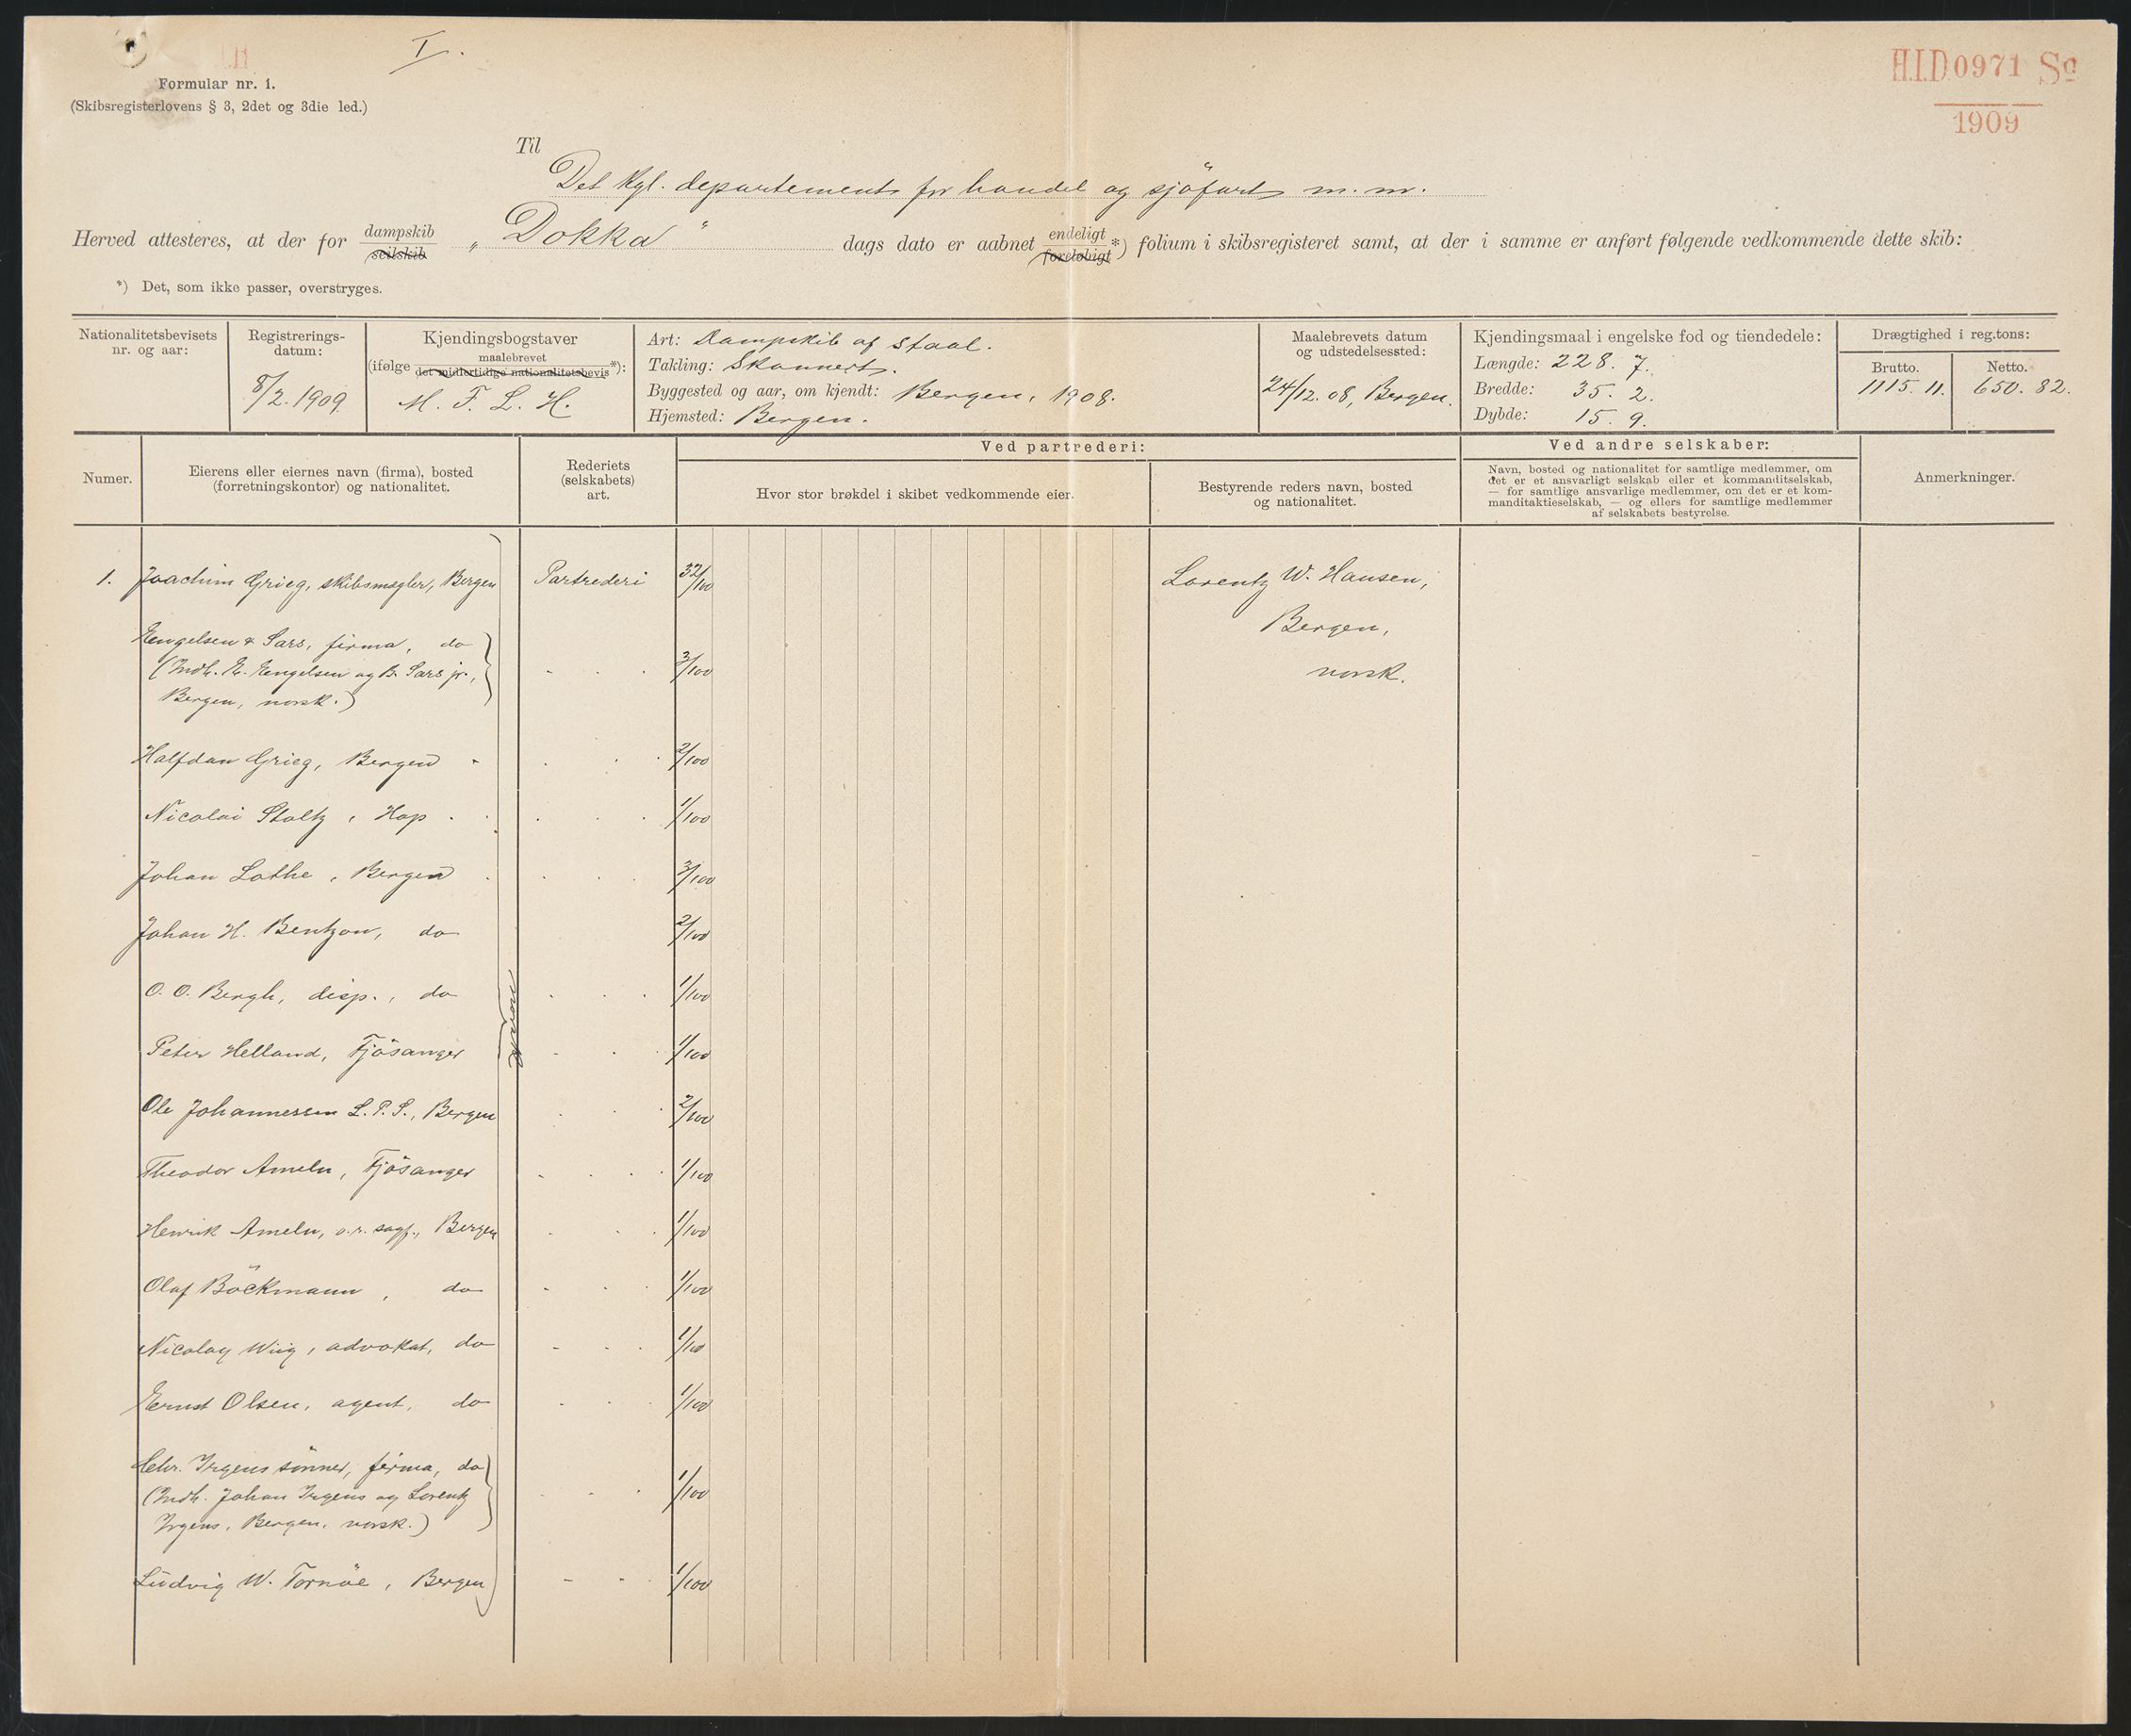 I.
H.I.D 0971 Sø
1909
Formular nr. 1.
(Skibsregisterlovens § 3, 2det og 3die led.)
Til
Det kgl. departement for handel og sjöfart m.m.
Herved attesteres, at der for dampskib seilskib „Dokka“ dags dato er aabnet endeligt foreløbigt *) folium i skibsregisteret samt, at der i samme er anført følgende vedkommende dette skib:
*) Det, som ikke passer, overstryges.
Nationalitetsbevisets nr. og aar:
Registrerings-datum:
8/2. 1909
Kjendingsbogstaver
(ifølge maalebrevet det midlertidige nationalitetsbevis *):
M. F. L. H.
Art: Dampskib af staal.
Takling: Skonnert.
Byggested og aar, om kjendt: Bergen, 1908.
Hjemsted: Bergen.
Maalebrevets datum og udstedelsessted:
24/12. 08, Bergen.
Kjendingsmaal i engelske fod og tiendedele:
Længde: 228. 7.
Bredde: 35. 2.
Dybde: 15. 9.
Drægtighed i reg.tons:
Brutto. Netto.
1115. 11. 650. 82.
Numer.
Eierens eller eiernes navn (firma), bosted
(forretningskontor) og nationalitet.
Rederiets
(selskabets)
art.
Ved partrederi:
Hvor stor brøkdel i skibet vedkommende eier.
Bestyrende reders navn, bosted
og nationalitet.
Ved andre selskaber:
Navn, bosted og nationalitet for samtlige medlemmer, om
det er et ansvarligt selskab eller et kommanditselskab,
— for samtlige ansvarlige medlemmer, om det er et kom-
manditaktieselskab, — og ellers for samtlige medlemmer
af selskabets bestyrelse.
Anmerkninger.
1. Joachim Grieg, skibsmægler, Bergen Partrederi 32/100 Lorentz W. Hansen,
Bergen,
norsk.
Engelsen & Sars, firma, do
(Indh. E. Engelsen og B. Sars jr., - . . 3/100
Bergen, norsk.)
Halfdan Grieg, Bergen - . . . 2/100
Nicolai Stoltz, Hop . . . . 1/100
Johan Lothe, Bergen . . . . 3/100
Johan H. Bentzon, do 2/100
O. O. Bergh, disp., do . . . 1/100
norsk
Peter Helland, Fjösanger - . . 1/100
Ole Johannessen L. P. S., Bergen . . . 2/100
Theodor Ameln, Fjösanger . . . 1/100
Henrik Ameln, o.r. sagf., Bergen . . . 1/100
Olaf Böckmann, do - . . 1/100
Nicolay Wiig, advokat, do - . . 1/100
Ernst Olsen, agent, do . . . 1/100
Chr. Irgens sönner, firma, do
(Indh. Johan Irgens og Lorentz . . . 1/100
Irgens, Bergen, norsk.)
Ludvig W. Tornöe, Bergen - - . 1/100